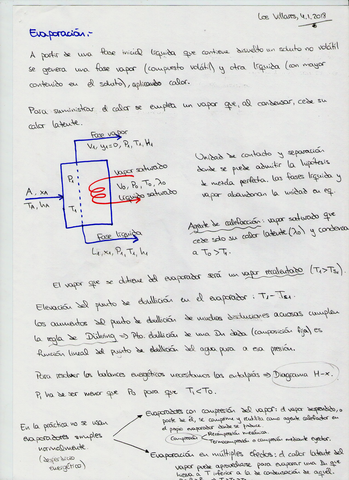 Los Villares, 4.1.2018
Evaporación.-
A partir de una fase inicial líquida que contiene disuelto un soluto no volátil
se genera una fase vapor (compuesto volátil) y otra líquida (con mayor
contenido en el soluto), aplicando calor.
Para suministrar el calor se emplea un vapor que, al condensar, cede su
calor latente.
Fase vapor
V₁, y₁=0, P₁, T₁, H₁
P₁
T₁
A, xA
TA, hA
vapor saturado
V₀, P₀, T₀, λ₀
líquido saturado
Fase líquida
L₁, x₁, P₁, T₁, h₁
Unidad de contacto y separación
donde se puede admitir la hipótesis
de mezcla perfecta. Las fases líquida y
vapor abandonan la unidad en eq.
Agente de calefacción: vapor saturado que
cede solo su calor latente (λ₀) y condensa
a T₀ > T₁.
El vapor que se obtiene del evaporador será un vapor recalentado (T₁>
Elevación del punto de ebullición en el evaporador:
Los aumentos del punto de ebullición de muchas disoluciones acuosas cumplen
la regla de Dühring → Pto. ebullición de una Dn dada (composición fija) es
función lineal del punto de ebullición del agua pura a esa presión.
Para resolver los balances energéticos necesitamos las entalpías → Diagrama H-x.
P₁ ha de ser menor que P₀ para que T₁<T₀.
En la práctica no se usan
evaporadores simples
normalmente.
(desperdicio
energético)
Evaporadores con compresión del vapor: el vapor desprendido, o
parte de él, se comprime y utiliza como agente calefactor en
el propio evaporador donde se produce.
Compresión
Recompresión mecánica
Termocompresión o compresión mediante eyector.
Evaporación en múltiples efectos: el calor latente del
vapor puede aprovecharse para evaporar una Dn que
hierva a T inferior a la de condensación de aquél.